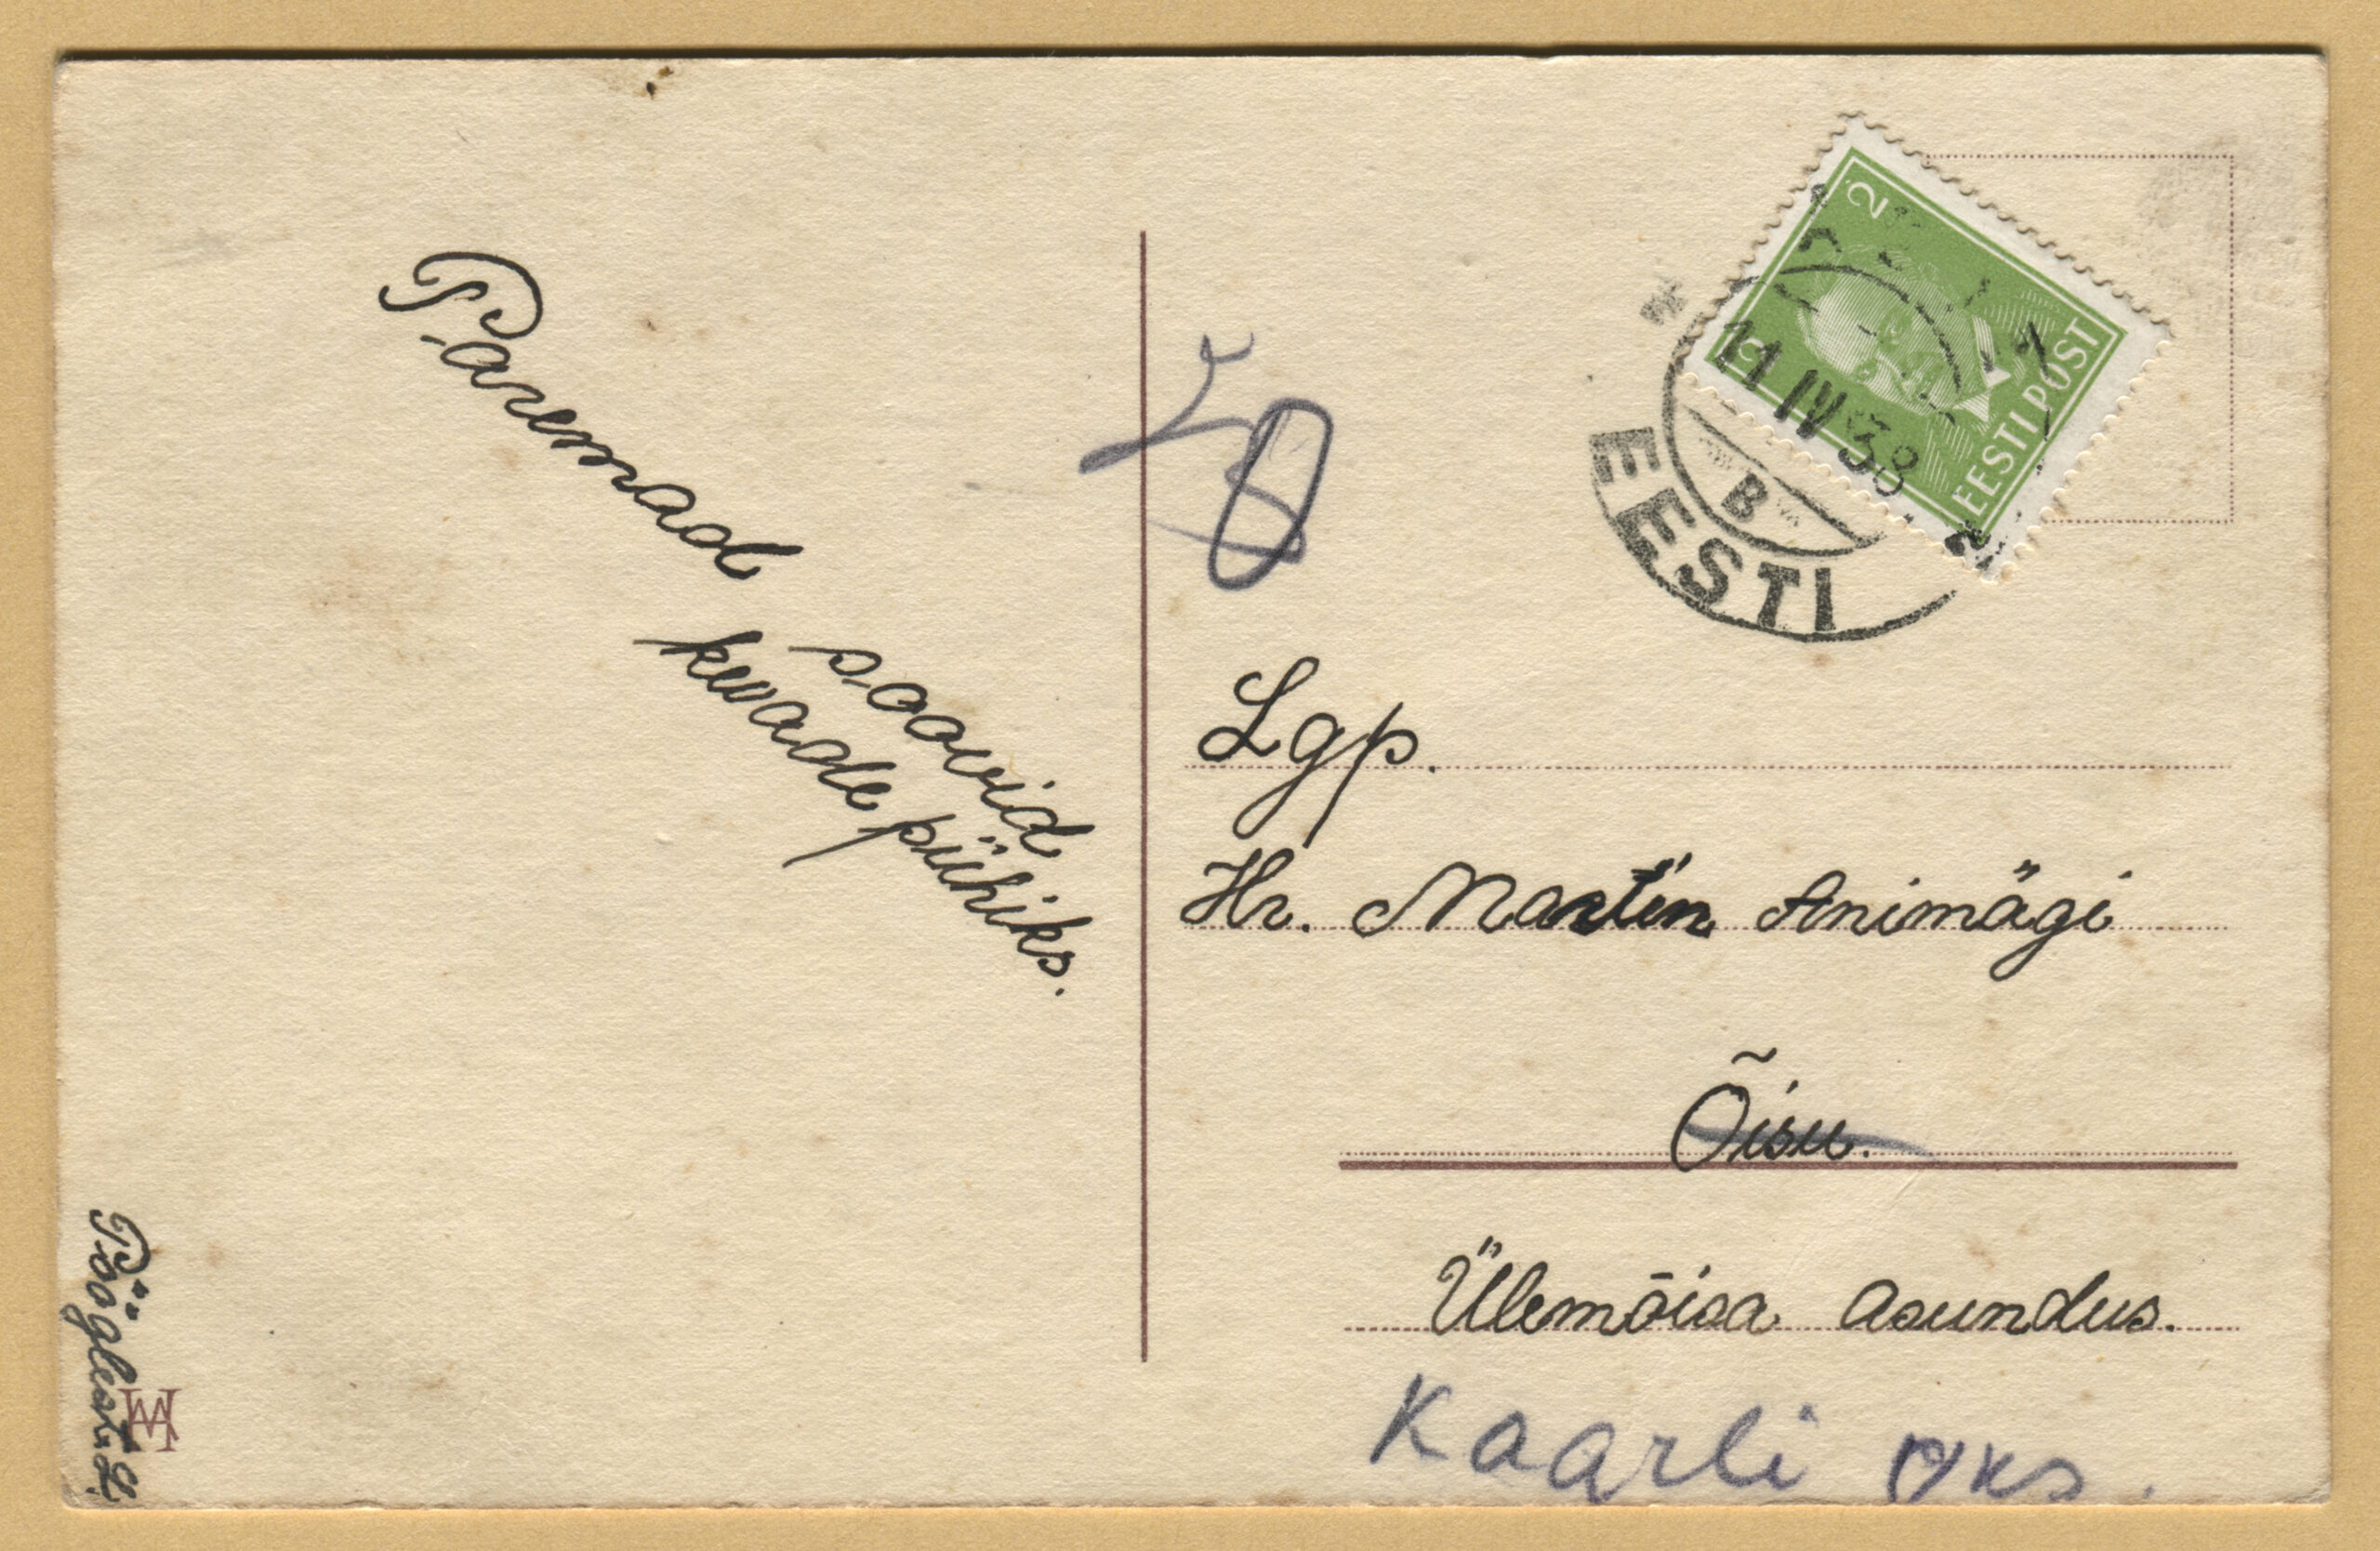 Paremad
soovid
kevade pühiks.
2
2
EESTI POST
11 IV 38
B
EESTI
Lgp.
Hr. Martin Animägi
Õisu.
Ülemõisa asundus.
Kaarli